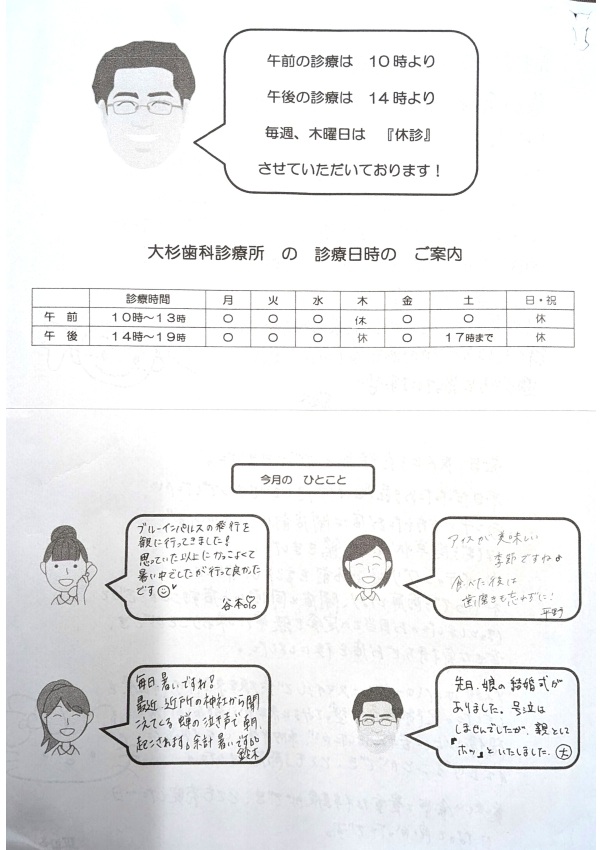 午前の診療は 10時より
午後の診療は 14時より
毎週、木曜日は 『休診』
させていただいております！
大杉歯科診療所 の 診療日時の ご案内
診療時間 月 火 水 木 金 土 日・祝
午 前 10時～13時 ○ ○ ○ 休 ○ ○ 休
午 後 14時～19時 ○ ○ ○ 休 ○ 17時まで 休
今月の ひとこと
ブルーインパルスの飛行を
観に行ってきました！
思っていた以上にカッコよくて
暑い中でしたが行って良かった
です
谷本
アイスが美味しい
季節ですね
食べた後は
歯磨きも忘れずに！
平野
毎日暑いですね！
最近、近所の神社から聞
こえてくる蝉の泣き声で朝、
起こされます。余計暑いです
鈴木
先日、娘の結婚式が
ありました。号泣は
しませんでしたが、親として
『ホッ』といたしました。 大